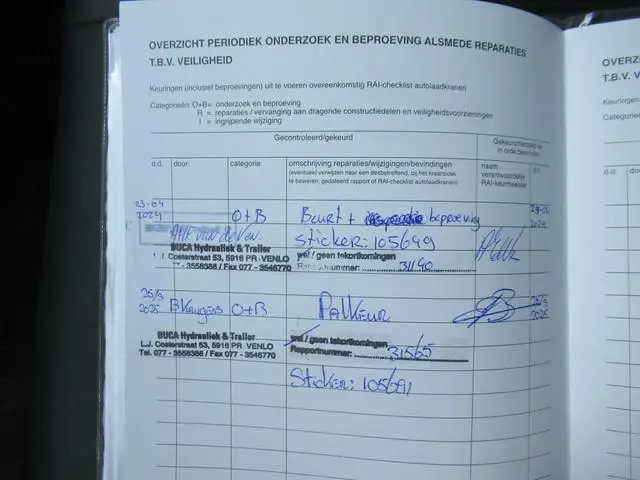 OVERZICHT PERIODIEK ONDERZOEK EN BEPROEVING ALSMEDE REPARATIES
T.B.V. VEILIGHEID
Keuringen (inclusief beproevingen) uit te voeren overeenkomstig RAI-checklist autolaadkranen
Categorieën: O+B= onderzoek en beproeving
R = reparaties / vervanging aan dragende constructiedelen en veiligheidsvoorzieningen
I = ingrijpende wijziging
Gecontroleerd/gekeurd
Gekeurd/hersteld en
in orde bevonden
d.d. door: categorie omschrijving reparaties/wijzigingen/bevindingen
(eventueel verwijzen naar een desbetreffend, bij het kraanboek
te bewaren, gedateerd rapport of RAI-checklist autolaadkranen)
naam
verantwoordelijk
RAI-keurmeester
d.d.
23-04
2024 O+B Beurt + beproeving
2024
Sticker: 105649
BUCA Hydrauliek & Trailer
L.J. Costerstraat 53, 5916 PR VENLO
077 - 3558388 / Fax 077 - 3546770
wel / geen tekortkomingen
Rapportnummer: 31140
25/3
2025 O+B PalKeur
25/3
2025
BUCA Hydrauliek & Trailer
L.J. Costerstraat 53, 5916 PR VENLO
Tel. 077 - 3558388 / Fax 077 - 3546770
wel / geen tekortkomingen
Rapportnummer: 31565
Sticker: 105691
OVERZ
T.B.V. V
Keuringen
Categorie
d.d.